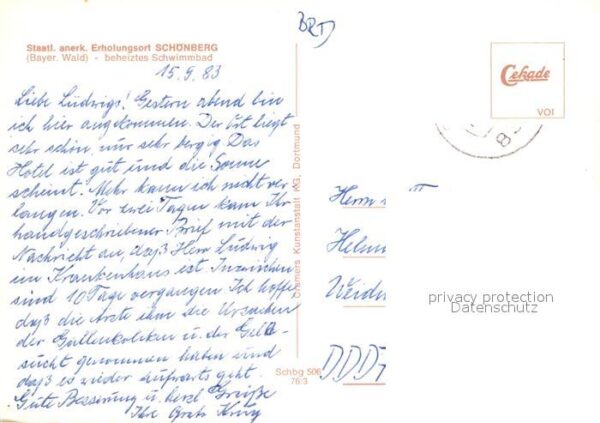 BRD
Staatl. anerk. Erholungsort SCHÖNBERG
(Bayer. Wald) - beheiztes Schwimmbad
15.9.83
Liebe Ludwigs! Gestern abend bin
ich hier angekommen. Der Ort liegt
sehr schön, nur sehr bergig. Das
Hotel ist gut und die Sonne
scheint. Mehr kann ich nicht ver
langen. Vor zwei Tagen kam Ihr
handgeschriebener Brief mit der
Nachricht an, daß Herr Ludwig
im Krankenhaus ist. Inzwischen
sind 10 Tage vergangen. Ich hoffe,
daß die Ärzte ihm die Ursachen
der Gallenkoliken u. der Gelb-
sucht genommen haben und
daß es wieder aufwärts geht.
Gute Besserung u. herzl. Grüße
Ihre Grete Krug
Cramers Kunstanstalt KG, Dortmund
Schbg 506
76:3
Cekade
VOI
Herrn
Helm
Weid
privacy protection
Datenschutz
DDD7